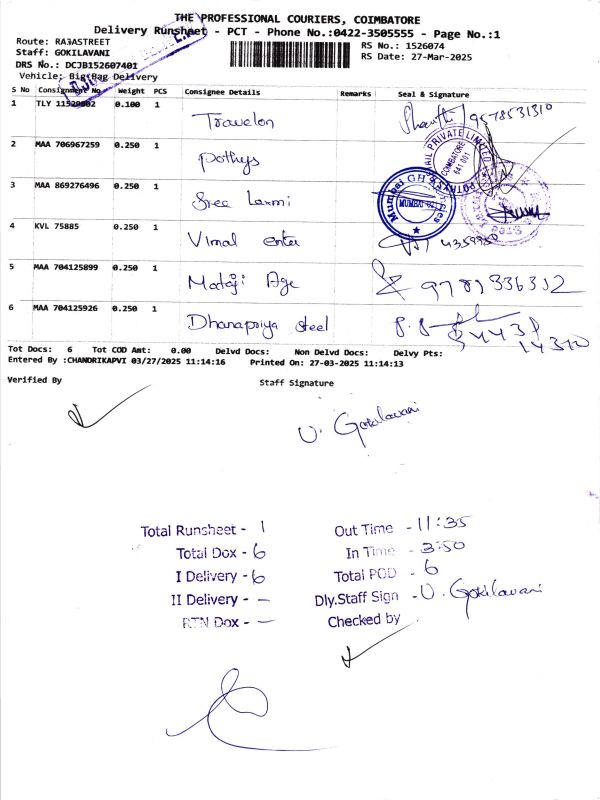 THE PROFESSIONAL COURIERS, COIMBATORE
Delivery Runsheet - PCT - Phone No.:0422-3505555 - Page No.:1
Route: RAJASTREET
Staff: GOKILAVANI
DRS No.: DCJB152607401
Vehicle; Big Bag Delivery
RS No.: 1526074
RS Date: 27-Mar-2025
S No Consignment No Weight PCS Consignee Details Remarks Seal & Signature
1 TLY 11529802 0.100 1 Travelon 9578531310
2 MAA 706967259 0.250 1 Pothys
3 MAA 869276496 0.250 1 Sree Laxmi
4 KVL 75885 0.250 1 Vimal enter
5 MAA 704125899 0.250 1 Mataji Age
6 MAA 704125926 0.250 1 Dhanapriya Steel
COIMBATORE
641 001
Tot Docs: 6 Tot COD Amt: 0.00 Delvd Docs: Non Delvd Docs: Delvy Pts:
Entered By :CHANDRIKAPVI 03/27/2025 11:14:16 Printed On: 27-03-2025 11:14:13
Verified By Staff Signature
U. Gokilavani
Total Runsheet - 1
Total Dox - 6
I Delivery - 6
II Delivery - -
RTN Dox - -
Out Time - 11:35
In Time - 3:50
Total POD - 6
Dly.Staff Sign - U. Gokilavani
Checked by